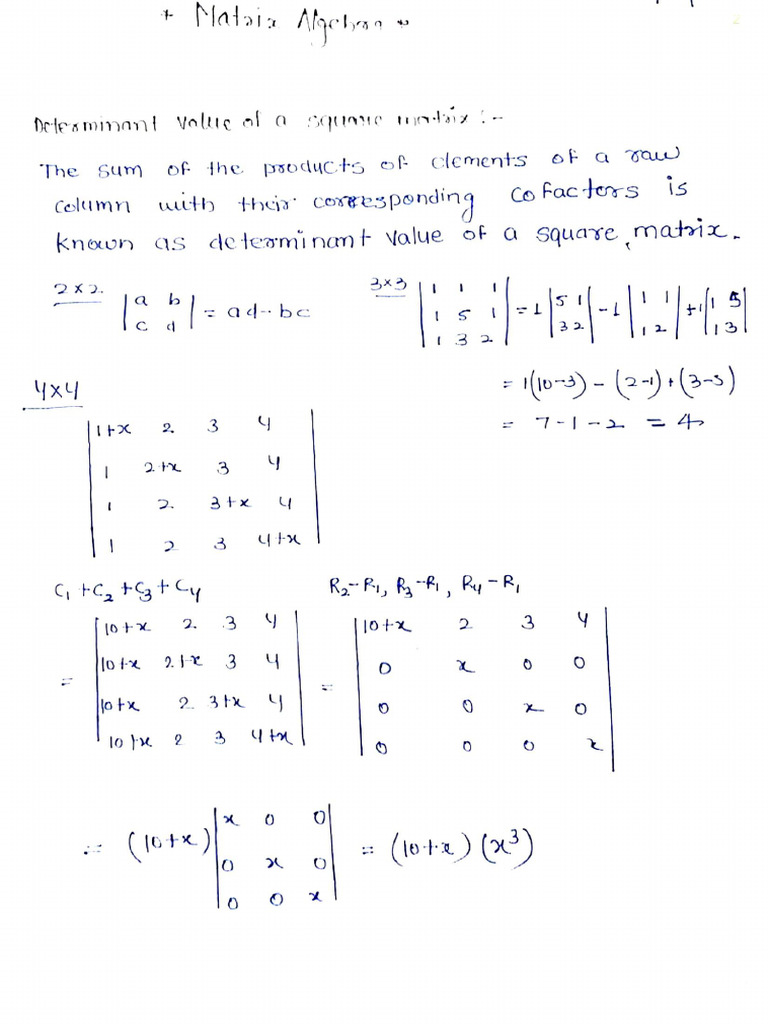 * Matrix Algebra *
Determinant value of a square matrix :-
The sum of the products of elements of a raw
column with their corresponding cofactors is
known as determinant value of a square matrix.
2 x 2. | a b | = ad - bc
| c d |
3x3 | 1 1 1 |
| 1 5 1 | = 1 | 5 1 | - 1 | 1 1 | + 1 | 1 5 |
| 1 3 2 | | 3 2 | | 1 2 | | 1 3 |
= 1(10-3) - (2-1) + (3-5)
= 7 - 1 - 2 = 4
4x4
| 1+x 2. 3 4 |
| 1 2+x 3 4 |
| 1 2. 3+x 4 |
| 1 2 3 4+x |
C1 + C2 + C3 + C4
= | 10+x 2. 3 4 |
| 10+x 2+x 3 4 |
| 10+x 2 3+x 4 |
| 10+x 2 3 4+x |
R2-R1, R3-R1, R4-R1
= | 10+x 2 3 4 |
| 0 x 0 0 |
| 0 0 x 0 |
| 0 0 0 x |
= (10+x) | x 0 0 | = (10+x) (x³)
| 0 x 0 |
| 0 0 x |